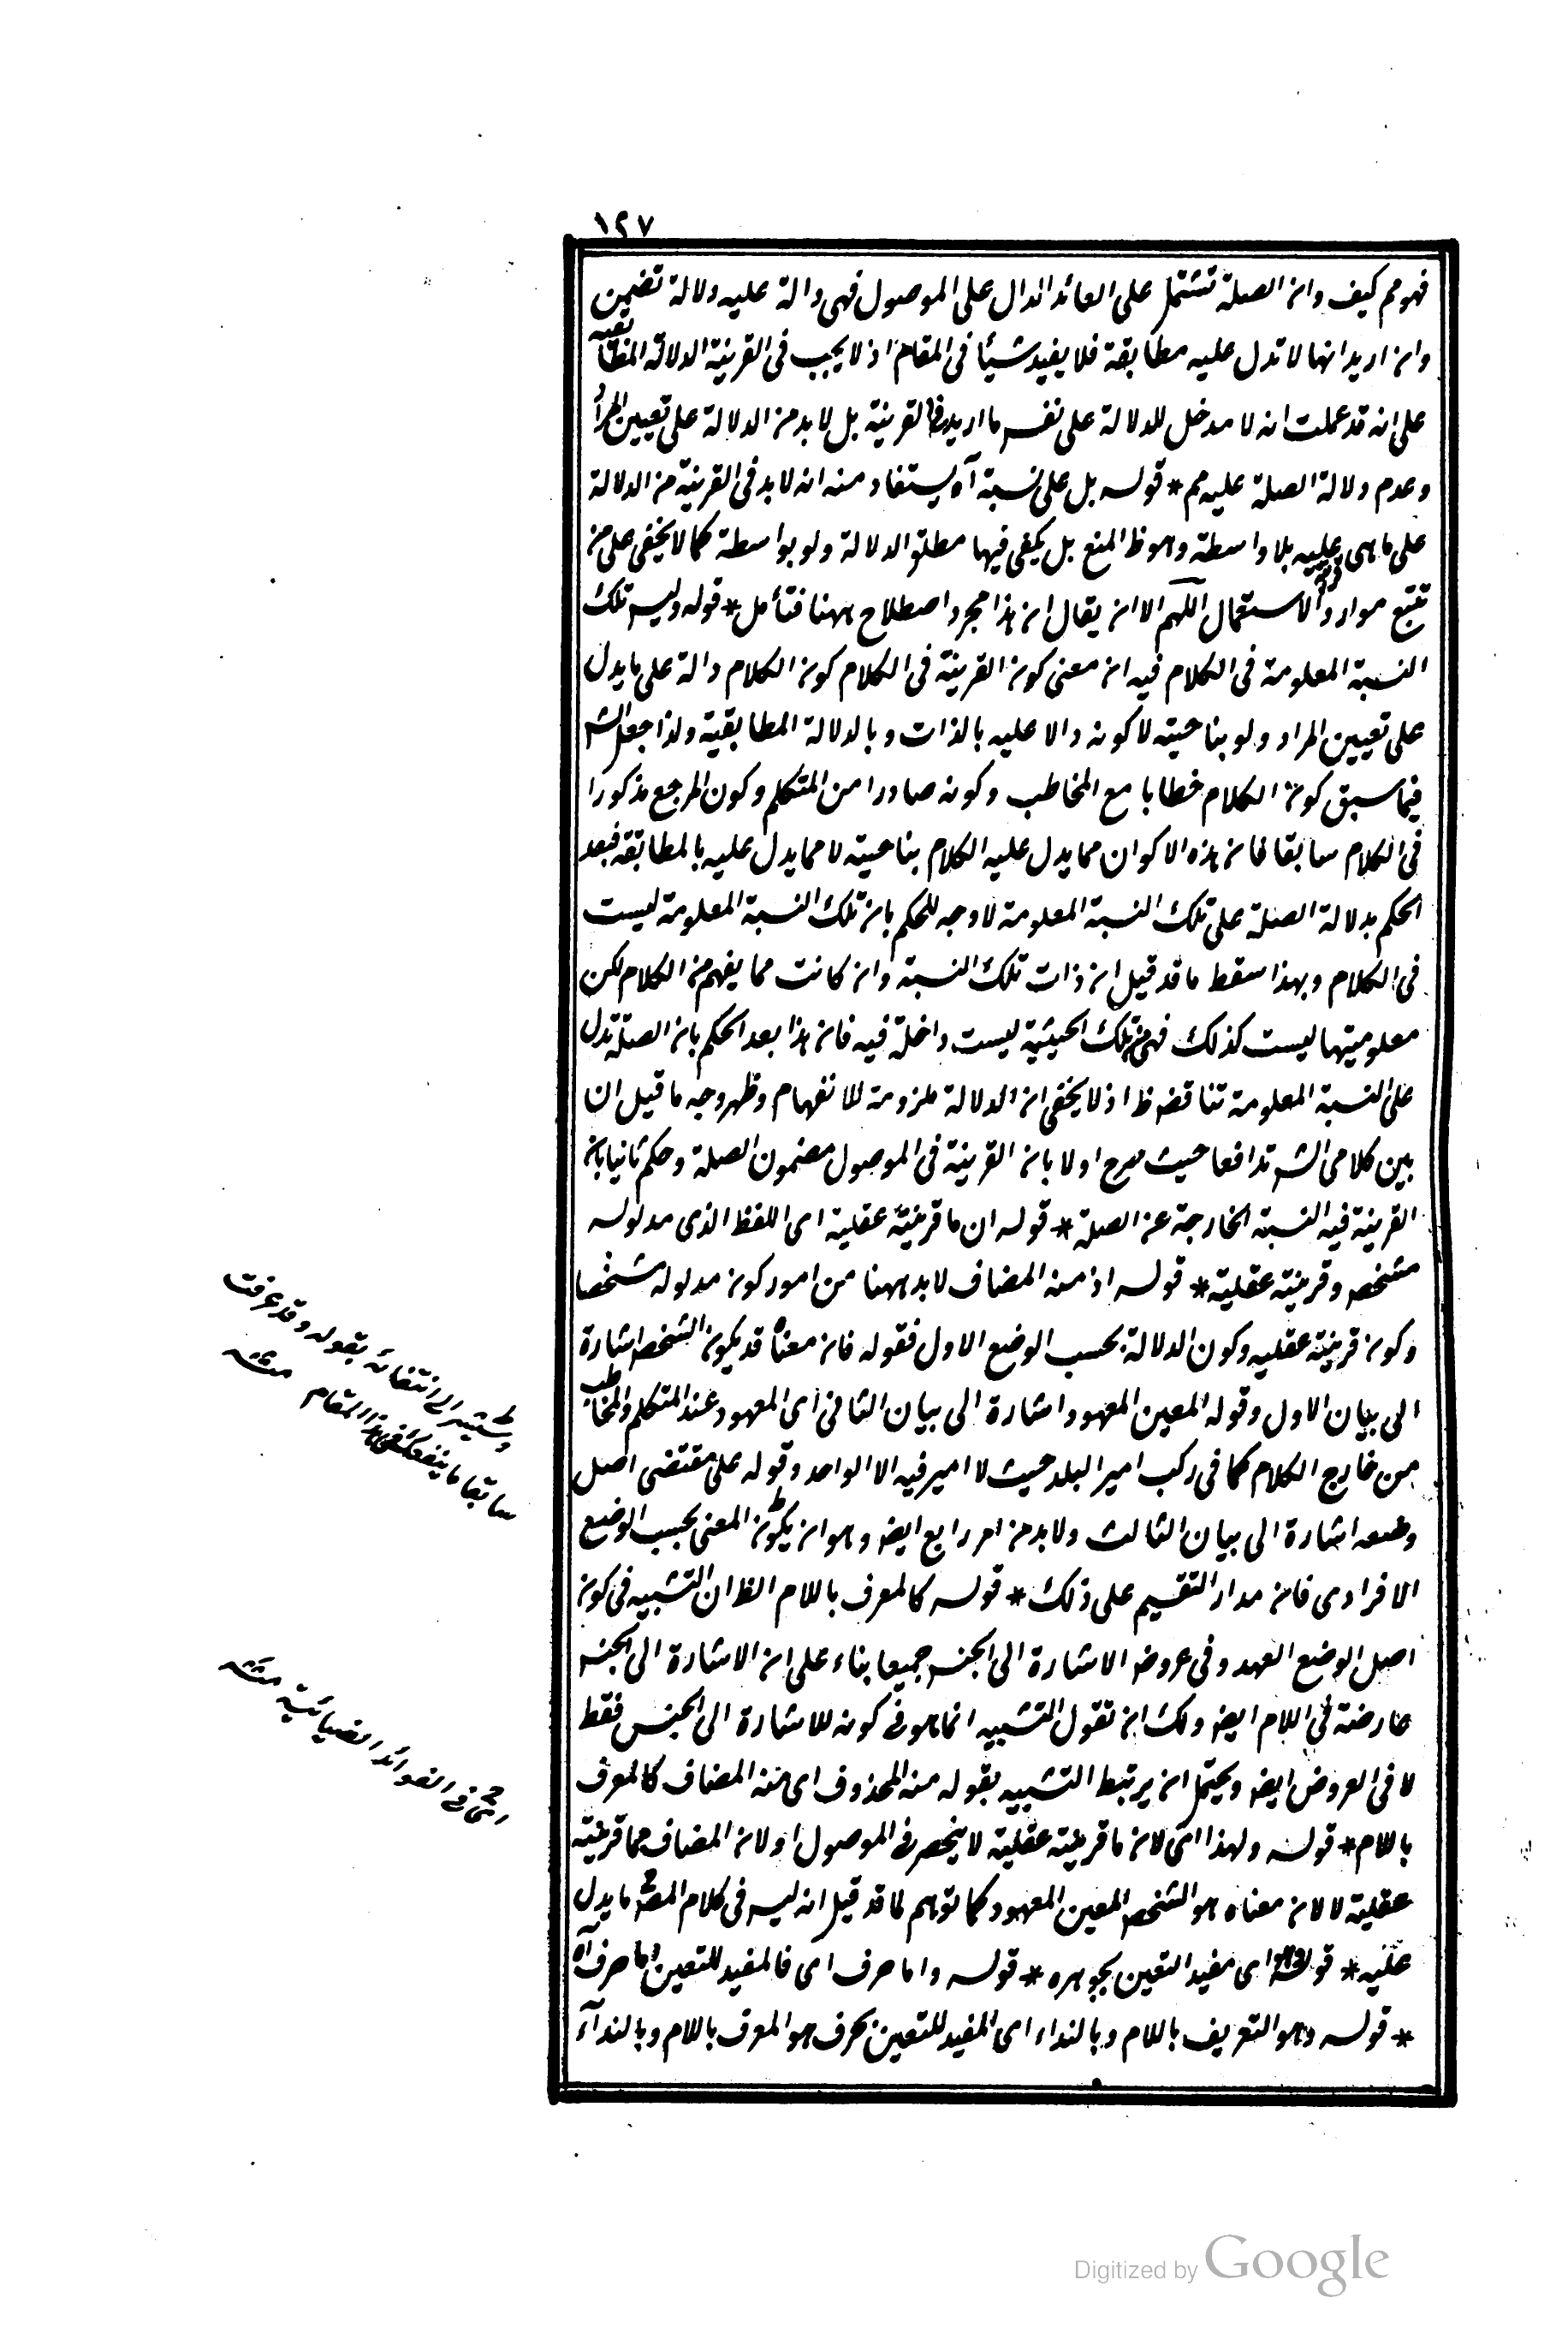 ١٢٧
فهو مم كيف وان الصلة تشتمل على العائد الدال على الموصول فهى دالة عليه دلالة تضمن
وان اريد انها لا تدل عليه مطابقة فلا يفيد شيئا فى المقام اذ لا يجب فى القرينة الدلالة المطابقية
على انه قد علمت انه لا مدخل للدلالة على نفس ما اريد بالقرينة بل لا بد من الدلالة على تعيين المراد
وعدم دلالة الصلة عليه مم * قوله بل على نسبة آه يستفاد منه انه لا بد فى القرينة من الدلالة
على ما هى عليه بلا واسطة وهو ظ المنع بل يكفى فيها مطلق الدلالة ولو بواسطة كما لا يخفى على من
تتبع موارد الاستعمال اللهم الا ان يقال ان هذا مجرد اصطلاح ههنا فتأمل * قوله وليس تلك
النسبة المعلومة فى الكلام فيه ان معنى كون القرينة فى الكلام كون الكلام دالة على ما يدل
على تعيين المراد ولو بناحيته لا كونه دالا عليه بالذات وبالدلالة المطابقية ولذا جعل الش
فيما سبق كون الكلام خطابا مع المخاطب وكونه صادرا من المتكلم وكون المرجع مذكورا
فى الكلام سابقا فان هذه الاكوان مما يدل عليه الكلام بناحيته لا مما يدل عليه بالمطابقة فبعد
الحكم بدلالة الصلة على تلك النسبة المعلومة لا وجه للحكم بان تلك النسبة المعلومة ليست
فى الكلام وبهذا سقط ما قد قيل ان ذات تلك النسبة وان كانت مما يفهم من الكلام لكن
معلوميتها ليست كذلك فهى من تلك الحيثية ليست داخلة فيه فان هذا بعد الحكم بان الصلة تدل
على النسبة المعلومة تناقض ظ اذ لا يخفى ان الدلالة ملزومة للانفهام وظهر وجه ما قيل ان
بين كلامى الش تدافعا حيث صرح اولا بان القرينة فى الموصول مضمون الصلة وحكم ثانيا بان
القرينة فيه النسبة الخارجة عن الصلة * قوله ان ما قرينته عقلية اى اللفظ الذى مدلوله
مشخص وقرينته عقلية * قوله اذ منه المضاف لا بد ههنا من امور كون مدلوله مشخصا
وكون قرينته عقليه وكون الدلالة بحسب الوضع الاول فقوله فان معناه قد يكون الشخص اشارة
الى بيان الاول وقوله المعين المعهود اشارة الى بيان الثانى اى المعهود عند المتكلم والمخاطب
من خارج الكلام كما فى ركب امير البلد حيث لا امير فيه الا الواحد وقوله على مقتضى اصل
وضعه اشارة الى بيان الثالث ولا بد من امر رابع ايض وهو ان يكون المعنى بحسب الوضع
الافرادى فان مدار التقسيم على ذلك * قوله كالمعرف باللام الظ ان التشبيه فى كون
اصل الوضع العهد وفى عروض الاشارة الى الجنس جميعا بناء على ان الاشارة الى الجنس
عارضة فى اللام ايض ولك ان تقول التشبيه انما هو فى كونه للاشارة الى الجنس فقط
لا فى العروض ايض ويحتمل ان يرتبط التشبيه بقوله منه المحذوف اى منه المضاف كالمعرف
باللام * قوله ولهذا اى لان ما قرينته عقلية لا ينحصر فى الموصول او لان المضاف مما قرينته
عقلية لا لان معناه هو الشخص المعين المعهود كما توهم لما قد قيل انه ليس فى كلام المص ما يدل
عليه * قوله اى مفيد التعين بجوهره * قوله واما حرف اى فالمفيد للتعين اما حرف آه
* قوله وهو التعريف باللام وبالنداء اى المفيد للتعين بحرف هو المعرف باللام وبالندآء
وسيشير الى انتفائه بقوله وقد عرفت
سابقا ما ينفعك فى هذا المقام منه
فى الفوائد الضيائية منه
Digitized by Google